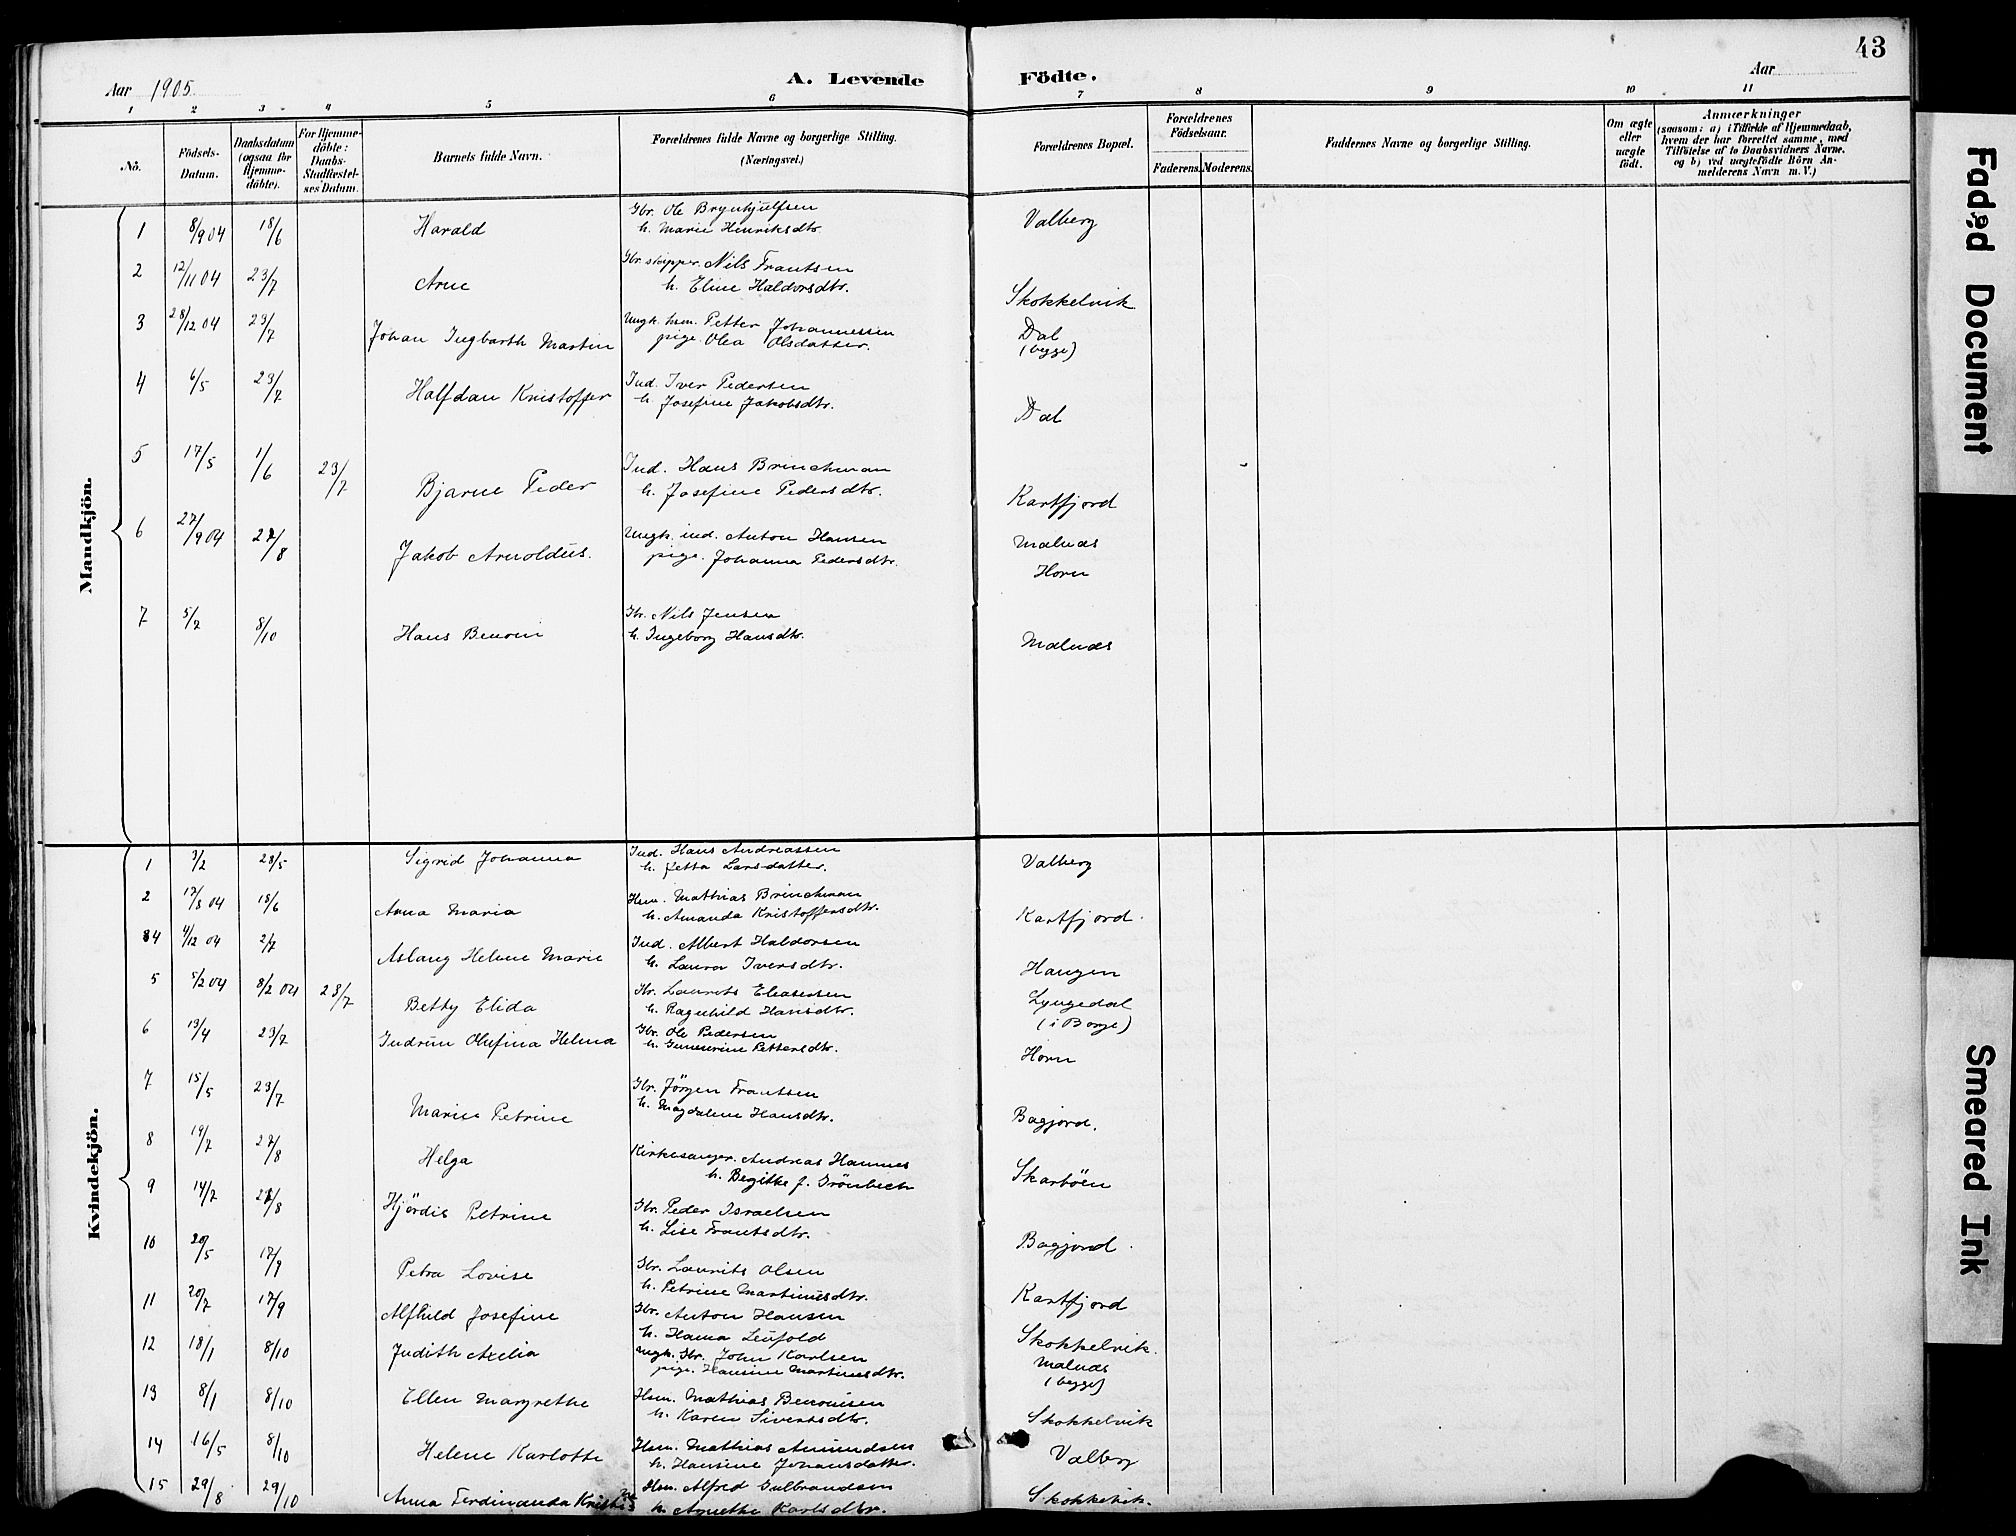 43
Aar 1905
A. Levende Födte.
Aar
1 2 3 4 5 6 7 8 9 10 11
No.
Födsels-Datum.
Daabsdatum (ogsaa for Hjemmedöbte).
For Hjemmedöbte: Daabs-Stadfæstelses Datum.
Barnets fulde Navn.
Forældrenes fulde Navne og borgerlige Stilling. (Næringsvei.)
Forældrenes Bopæl.
Forældrenes Födselsaar.
Faderens. Moderens.
Faddernes Navne og borgerlige Stilling.
Om ægte eller uægte födt.
Anmærkninger (saasom: a) i Tilfælde af Hjemmedaab, hvem der har forrettet samme, med Tilföielse af to Daabsvidners Navne, og b) ved uægtefödte Börn Anmelderens Navn m. V.)
Mandkjön.
1 8/9 04 18/6 Harald Gbr. Ole Brynhjulfsen Valberg
h. Marie Henriksdtr.
2 12/11 04 23/7 Arne Gbr. skipper. Nils Frantsen
h. Eline Haldorsdtr. Skokkelvik
3 28/12 04 23/7 Johan Ingbarth Martin Ungk. hsm. Petter Johannessen Dal
pige. Olea Olsdatter. (begge)
4 6/5 23/7 Halfdan Kristoffer Ind. Iver Pedersen
h. Josefine Jakobsdtr. Dal
5 17/5 1/6 23/7 Bjarne Peder Ind. Hans Brinchman
h. Josefine Pedersdtr. Kartfjord
6 27/9 04 27/8 Jakob Arnoldus. Ungk. ind. Anton Hansen Malnæs
pige. Johanna Pedersdtr. Horn
7 5/7 8/10 Hans Benoni Gbr. Nils Jensen
h. Ingeborg Hansdtr. Malnæs
Kvindekjön.
1 3/2 28/5 Sigrid Johanna Ind. Hans Andreassen Valberg
h. Jetta Larsdatter.
2 17/8 04 18/6 Anna Maria Hsm. Mathias Brinchman
h. Amanda Kristoffersdtr. Kartfjord.
4 4/12 04 2/7 Aslaug Helene Marie Ind. Albert Haldorsen
h. Laura Iversdtr. Haugen
5 5/2 04 8/2 04 23/7 Betty Elida Gbr. Laurits Eliasersen Lyngedal
h. Ragnhild Hansdtr. (i Borge)
6 13/4 23/7 Gudrun Olufina Helena Gbr. Ole Pedersen
h. Pettersdtr. Horn
7 15/5 23/7 Marie Petrine Gbr. Jörgen Frantsen
h. Magdalene Hansdtr. Bagjord.
8 19/7 27/8 Helga Kirkesanger. Andreas Hannes
h. Begitke f. Grönbech Skarböen
9 14/7 27/8 Hjördis Petrine Gbr. Peder Israelsen
h. Lise Frantsdtr. Bagjord.
10 20/5 17/9 Petra Lovise Gbr. Laurits Olsen
h. Petrine Martinusdtr. Kartfjord
11 20/7 17/9 Alfhild Josefine Gbr. Anton Hansen
h. Hanna Leufold Skokkelvik.
12 18/1 8/10 Judith Axelia Ungk. Gbr. John Karlsen Malnæs
pige. Hansine Martinusdtr. (begge)
13 8/1 8/10 Ellen Margrethe Hsm. Mathias Benonisen
h. Karen Sivertsdtr. Skokkelvik
14 16/5 8/10 Helene Karlotte Hsm. Mathias Amundsen Valberg
h. Hansine Johansdatter.
15 29/8 29/10 Anna Ferdinanda Hsm. Alfred Gulbrandsen
h. Agnethe Karlsdtr. Skokkelvik.
Faded Document
Smeared Ink